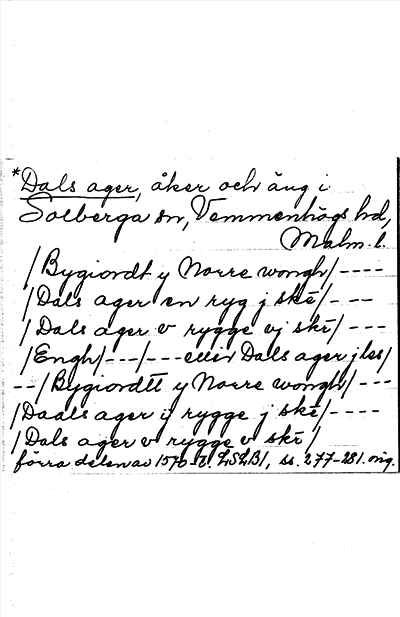 *Dals ager, åker och äng i
Solberga sn, Vemmenhögs hd,
Malm. l.
/Bygiordt y Norre wongh/----
/Dals ager en ryg j skē/---
/Dals ager v rygge vj skē/---
/Engh/---/---ellir Dals ager j les/
--/Bygiordtt y Norre wongh/---
/Daals ager ij rygge j skē/----
/Dals ager v rygge v skē/
förra delen av 1570 LSLB1, ss. 277-281. orig.